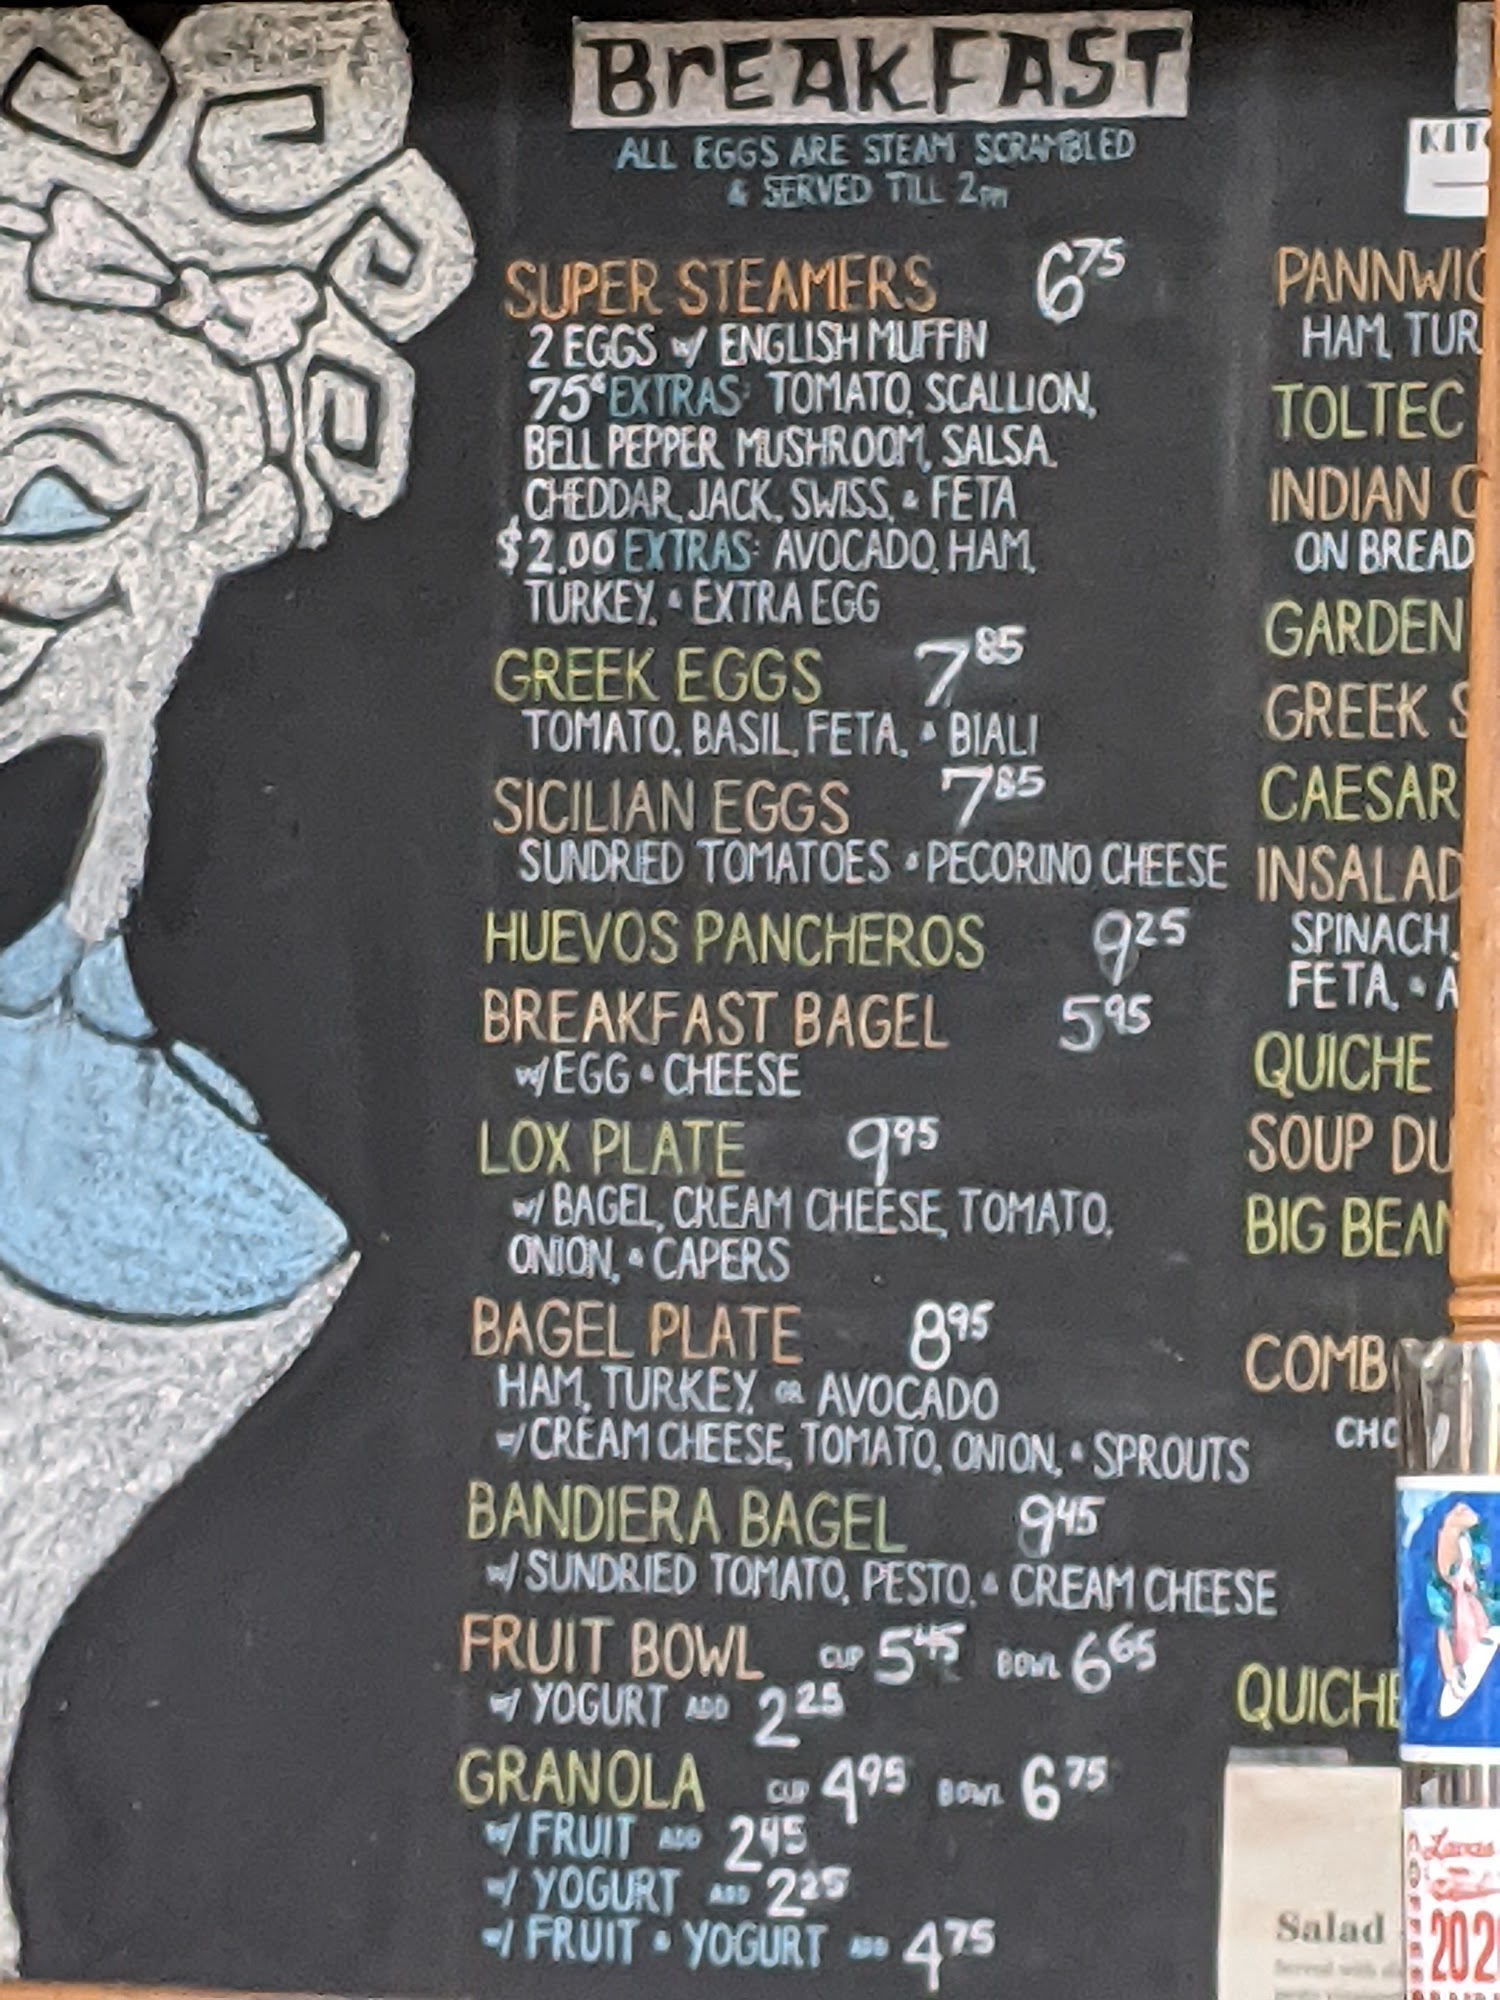 BREAKFAST
ALL EGGS ARE STEAM SCRAMBLED
& SERVED TILL 2PM
SUPER STEAMERS 6.75
2 EGGS w/ ENGLISH MUFFIN
75¢ EXTRAS: TOMATO, SCALLION,
BELL PEPPER, MUSHROOM, SALSA,
CHEDDAR, JACK, SWISS, & FETA
$2.00 EXTRAS: AVOCADO, HAM,
TURKEY, & EXTRA EGG
GREEK EGGS 7.85
TOMATO, BASIL, FETA, & BIALI
SICILIAN EGGS 7.85
SUNDRIED TOMATOES & PECORINO CHEESE
HUEVOS PANCHEROS 9.25
BREAKFAST BAGEL 5.95
w/ EGG & CHEESE
LOX PLATE 9.95
w/ BAGEL, CREAM CHEESE, TOMATO,
ONION, & CAPERS
BAGEL PLATE 8.95
HAM, TURKEY, OR AVOCADO
w/ CREAM CHEESE, TOMATO, ONION, & SPROUTS
BANDIERA BAGEL 9.45
w/ SUNDRIED TOMATO, PESTO, & CREAM CHEESE
FRUIT BOWL CUP 5.45 BOWL 6.65
w/ YOGURT ADD 2.25
GRANOLA CUP 4.95 BOWL 6.75
w/ FRUIT ADD 2.45
w/ YOGURT ADD 2.25
w/ FRUIT & YOGURT ADD 4.75
KITC
PANNWIC
HAM, TUR
TOLTEC
INDIAN C
ON BREAD
GARDEN
GREEK S
CAESAR
INSALAD
SPINACH,
FETA, & A
QUICHE
SOUP DU
BIG BEAN
COMB
CHO
QUICHE
Salad
202